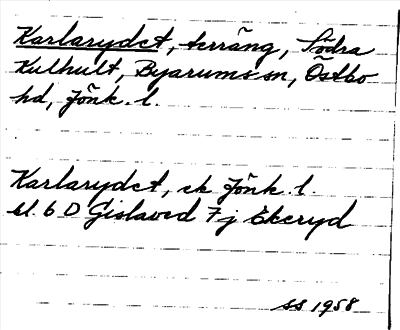 Karlarydet, terräng, Södra
Kulhult, Byarums sn, Östbo
hd, Jönk. l.
Karlarydet, ek Jönk. l.
bl. 6 D Gislaved 7 j Ekeryd
SS 1958